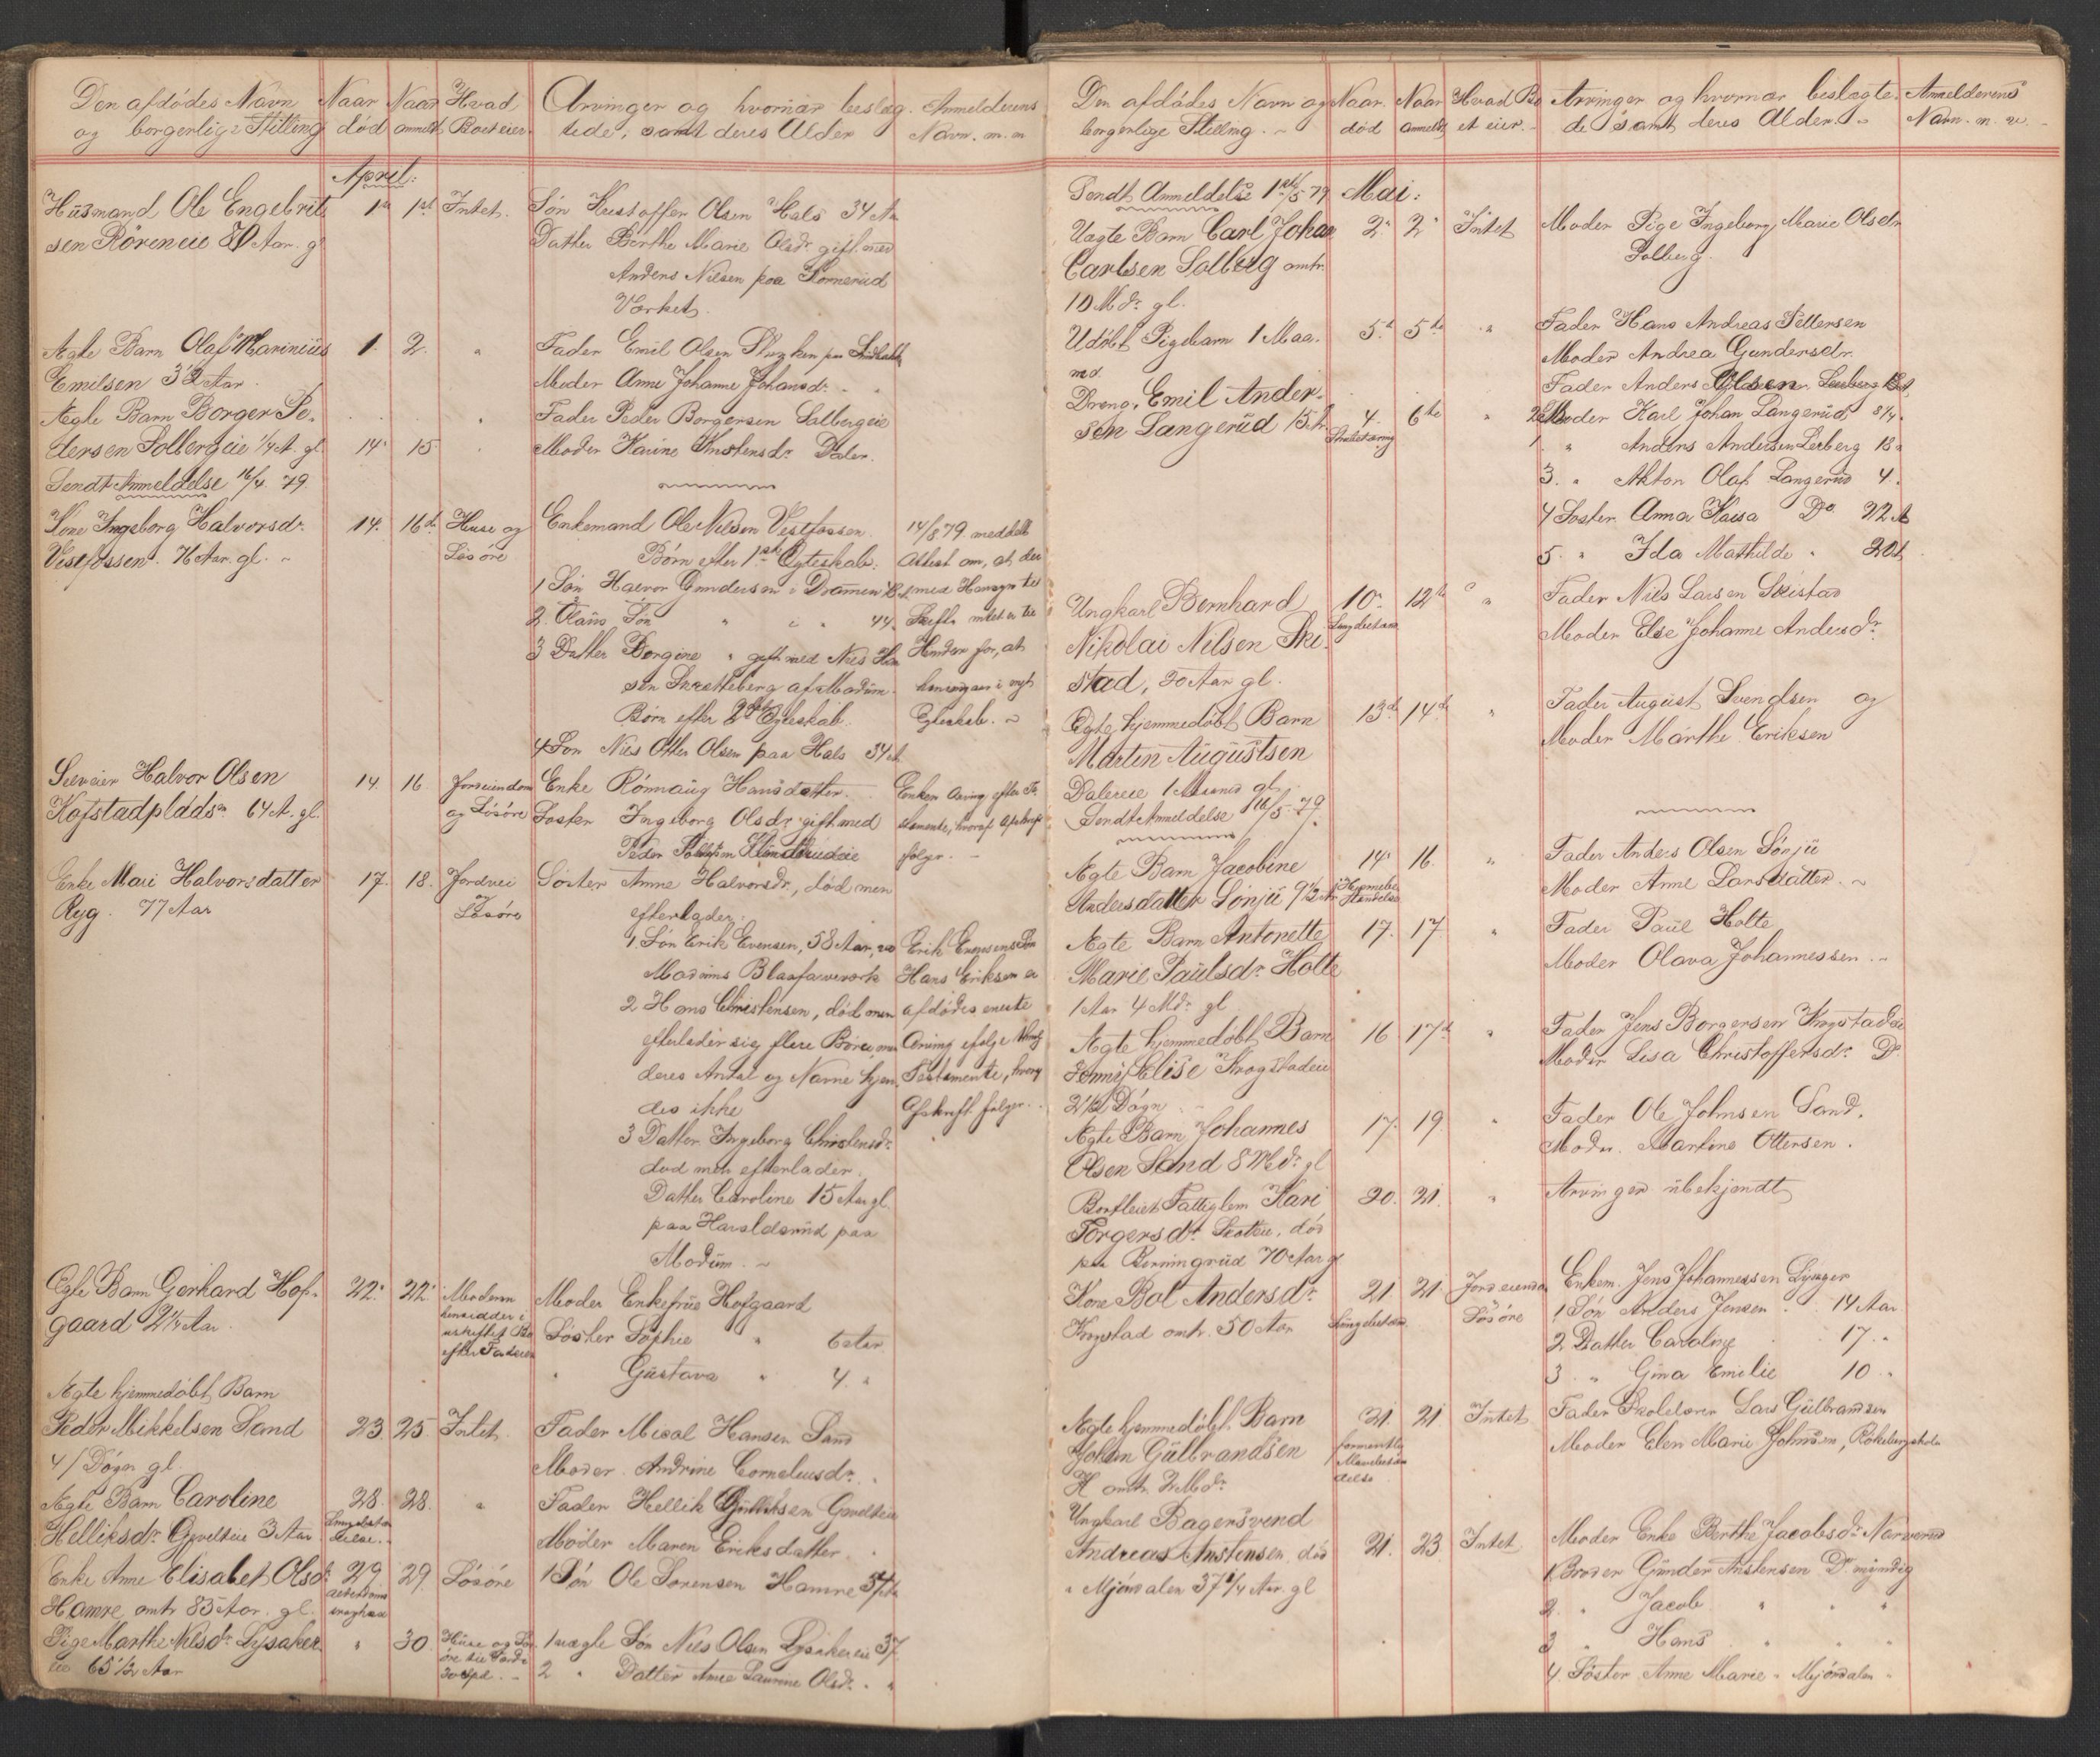 Den afdödes Navn
og borgerlige Stilling
Naar
död
Naar
anmeldt
Hvad
Boet eier
Arvinger og hvornær beslæg-
tede, samt deres Alder
Anmelderens
Navn. m. m
April:
Husmand Ole Engebrit
sen Röreneie 80 Aar. gl
1ste
1st
Intet.
Sön Kristoffer Olsen Hals 34 Aar
Datter Berthe Marie Olsdr gift med
Anders Nilsen paa
Værket.
Ægte Barn Olaf Marinius
Emilsen 3½ Aar.
1.
2.
"
Fader Emil Olsen
Moder Anne Johanne Johansdr.
Ægte Barn Borger Pe-
dersen Solbergeie ¼ A. gl.
14.
15
"
Fader Peder Borgersen Solbergeie
Moder Karine
Sendt Anmeldelse 16/4. 79.
Kone Ingeborg Halvorsdr.
Vestfossen. 76 Aar. gl.
14.
16de
Huse og
Lösöre
Enkemand Ole Nilsen Vestfossen.
Börn efter 1ste Egteskab:
1 Sön Halvor Gundersen i Dramen
2. Olaus Sön " i " 44.
3 Datter Borgine " gift med Nils Han
sen Skretteberg af Modum.
Börn efter 2det Egteskab.
4 Sön Nils Otter Olsen paa Hals 34 A
14/8 79 meddelt
Attest om, at der
med Hensyn til
Skifte intet er til
Hinder for, at
han indgaar i nyt
Egteskab.
Selveier Halvor Olsen
Kofstadplads 64 A. gl.
14.
16
Jordeiendom
og Lösöre
Enke Rönnaug Hansdatter.
Söster Ingeborg Olsdr gift med
Peder
Enken Arving efter Te-
stamente, hvoraf Afskrift
fölger.
Enke Mari Halvorsdatter
Ryg. 77 Aar
17.
18.
Jordvei
og
Lösöre
Söster Anne Halvorsdr., död men
efterlader:
1. Sön Erik Evensen, 58 Aar, ved
Modums Blaafarveværk
2 Hans Christensen, död men
efterlader sig flere Börn, men
deres Antal og Navne kjen-
des ikke
3 Datter Ingeborg Christensdr.
död men efterlader.
Datter Caroline 15 Aar gl.
paa Haraldsrud paa
Modum.
Erik Evensens Sön
Hans Eriksen er
afdödes eneste
Arving ifölge
Testamente, hvoraf
Afskrift fölger.
Egte Barn Gerhard Hof-
gaard 2¼ Aar.
22.
22.
Moderen
hensidder i
uskiftet Bo
efter Faderen
Moder Enkefrue Hofgaard
Söster Sophie " 6 Aar
" Gustava " 4. "
Ægte hjemmedöbt Barn
Peder Mikkelsen Sand
4/ Dögn gl.
23.
25.
Intet.
Fader Micael Hansen Sand
Moder. Andrine Corneliusdr.
Ægte Barn Caroline
Helliksdr. 3 Aar
28.
28.
"
Fader Hellik Gulliksen
Moder Maren Eriksdatter.
Enke Anne Elisabet Olsdr
Hamre omtr 85 Aar. gl.
29
Alderdoms
svaghed
29.
Lösöre
1 Sön Ole Sorensen Hamre
Pige Marthe Nilsdr. Lysaker
eie 65½ Aar
"
30.
Huse og Lös
öre til Værdi
30 Spd.
1 uægte Sön Nils Olsen Lysakereie 37
2 " Datter Anne Laurine Olsdr.
Den afdödes Navn og
borgerlige Stilling.
Naar.
död
Naar
anmeldt
Hvad Bo
et eier.
Arvinger og hvornær beslægte-
de samt deres Alder.
Anmelderens
Navn. m. m.
Sendt Anmeldelse 1ste/5 79
Mai:
Uægte Barn Carl Johan
Carlsen Solberg omtr.
10 Mdr. gl.
2.
2.
Intet
Moder Pige Ingeborg Marie Olsdr
Solberg.
Udöbt Pigebarn 1 Maa-
ned.
5te
5te
"
Fader Hans Andreas Pettersen
Moder Andrea Gundersdr.
Dreng. Emil Ander-
sen Langerud 15 A.
4.
6te
"
Fader Anders Olsen
Moder Karl Johan Langerud 8¼.
1. " Anders Andersen 18 "
3. " Anton Olaf Langerud 4.
4 Söster Anna Kaisa Do 22 A
5. " Ida Mathilde " 20 A.
Ungkarl Bernhard
Nikolai Nilsen Ski-
stad, 20 Aar gl.
10.
12te
"
Fader Nils Larsen Skistad
Moder Else Johanne Andersdr.
Egte hjemmedöbt Barn
Martin Augustsen
Dalereie 1 Maaned gl.
13de
14de
"
Fader August Svendsen og
Moder Marthe Eriksen
Sendt Anmeldelse 16/5. 79.
Ægte Barn Jacobine
Andersdatter Sönju 9½ Ar
14.
16.
"
Fader Anders Olsen Sönju
Moder Anne Larsdatter.
Ægte Barn Antonette
Marie Paulsdr. Holte
1 Aar 4 Mdr. gl
17.
17
"
Fader Paul Holte
Moder Olava Johannessen.
Ægte hjemmedöbt Barn
Jenny Elise Krogstadeie
2½ Dögn
16
17de
"
Fader Jens Borgersen Krogstadeie
Moder Lisa Christoffersdr. Do
Ægte Barn Johannes
Olsen Sand 8 Mdr. gl
17.
19.
"
Fader Ole Johnsen Sand.
Moder. Martine Ottersen.
Fattiglem Kari
Torgersdr. död
paa 70 Aar gl
20.
21.
"
Arvinger ubekjendt
Kone Bol Andersdr.
Krogstad omtr. 50 Aar
21.
21.
Jordeiendom
Lösöre
Enkem. Jens Johannessen
1 Sön Anders Jensen. 14 Aar.
2 Datter Caroline 17. "
3. " Gina Emilie 10 "
Ægte hjemmedöbt Barn
Johan Gulbrandsen
H omtr. 2 Mdr.
21.
21
Intet
Fader Skolelærer Lars Gulbrandsen
Moder Elen Marie Johnsen,
Ungkarl Bagersvend
Andreas Anstensen, död
i Mjöndalen 37¼ Aar. gl
21.
23.
Intet
Moder Enke Berthe Jacobsdr
1. Broder Gunder Anstensen Do. myndig
2. " Jacob " " "
3 " Hans " " "
4. Söster Anne Marie " Mjöndalen "